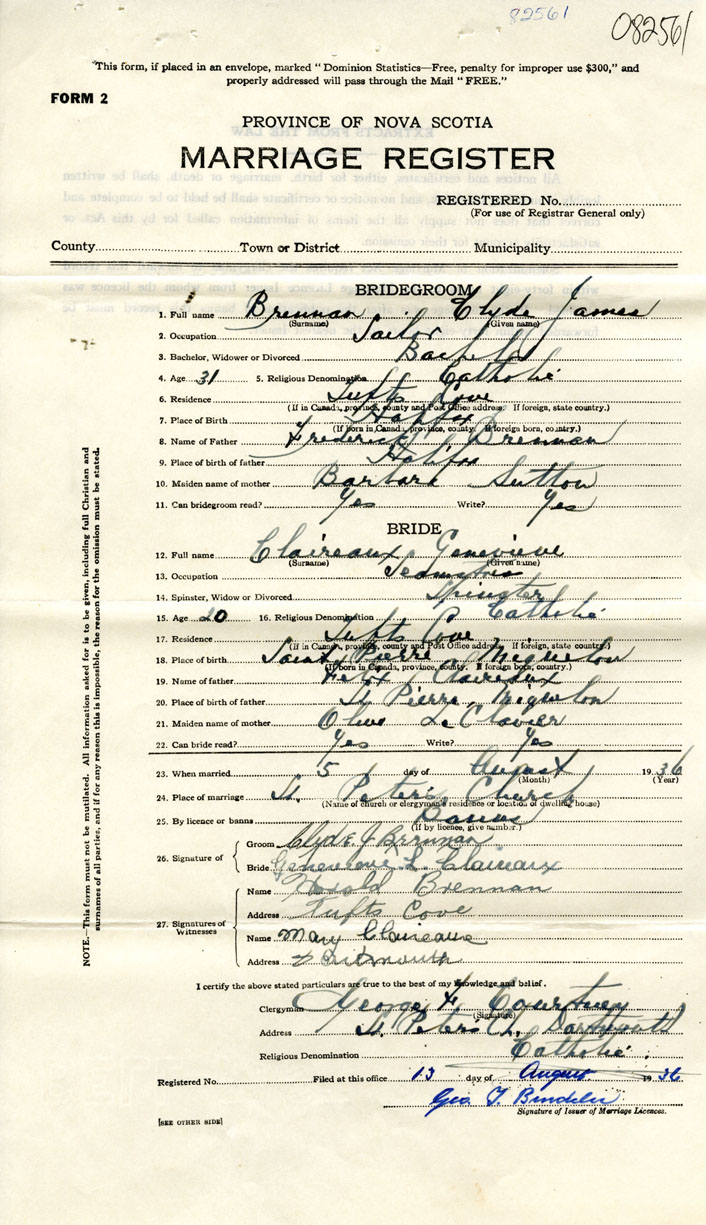 82561
08256/
"This form, if placed in an envelope, marked "Dominion Statistics—Free, penalty for improper use $300," and
properly addressed will pass through the Mail "FREE."
FORM 2
PROVINCE OF NOVA SCOTIA
MARRIAGE REGISTER
REGISTERED No.
(For use of Registrar General only)
County Town or District Municipality
BRIDEGROOM
1. Full name Brennan Clyde James
(Surname) (Given name)
2. Occupation Sailor
3. Bachelor, Widower or Divorced Bachelor
4. Age 31 5. Religious Denomination Catholic
6. Residence Tufts Cove
(If in Canada, province, county and Post Office address. If foreign, state country.)
7. Place of Birth Halifax
(If born in Canada, province, county. If foreign born, country.)
8. Name of Father Frederick Brennan
9. Place of birth of father Halifax
10. Maiden name of mother Barbara Sutton
11. Can bridegroom read? Yes Write? Yes
BRIDE
12. Full name Claireaux Genevieve
(Surname) (Given name)
13. Occupation
14. Spinster, Widow or Divorced Spinster
15. Age 20 16. Religious Denomination Catholic
17. Residence Tufts Cove
(If in Canada, province, county and Post Office address. If foreign, state country.)
18. Place of birth Saint Pierre Miquelon
(If born in Canada, province, county. If foreign born, country.)
19. Name of father Felix Claireaux
20. Place of birth of father St Pierre, Miquelon
21. Maiden name of mother Olive
22. Can bride read? Yes Write? Yes
23. When married 5 day of August 1936
(Month) (Year)
24. Place of marriage St. Peter's Church
(Name of church or clergyman's residence or location of dwelling house)
25. By licence or banns Banns
(If by licence, give number.)
26. Signature of
Groom Clyde J Brennan
Bride Genevieve L. Claireaux
27. Signatures of Witnesses
Name Harold Brennan
Address Tufts Cove
Name Mary Claireaux
Address Dartmouth
I certify the above stated particulars are true to the best of my knowledge and belief.
Clergyman George F. Courtney
(Signature)
Address St. Peters Ch. Dartmouth
Religious Denomination Catholic
Registered No. Filed at this office 13 day of August 1936
Geo. T.
Signature of Issuer of Marriage Licences.
[SEE OTHER SIDE]
NOTE.—This form must not be mutilated. All information asked for is to be given, including full Christian and
surnames of all parties, and if for any reason this is impossible, the reason for the omission must be stated.